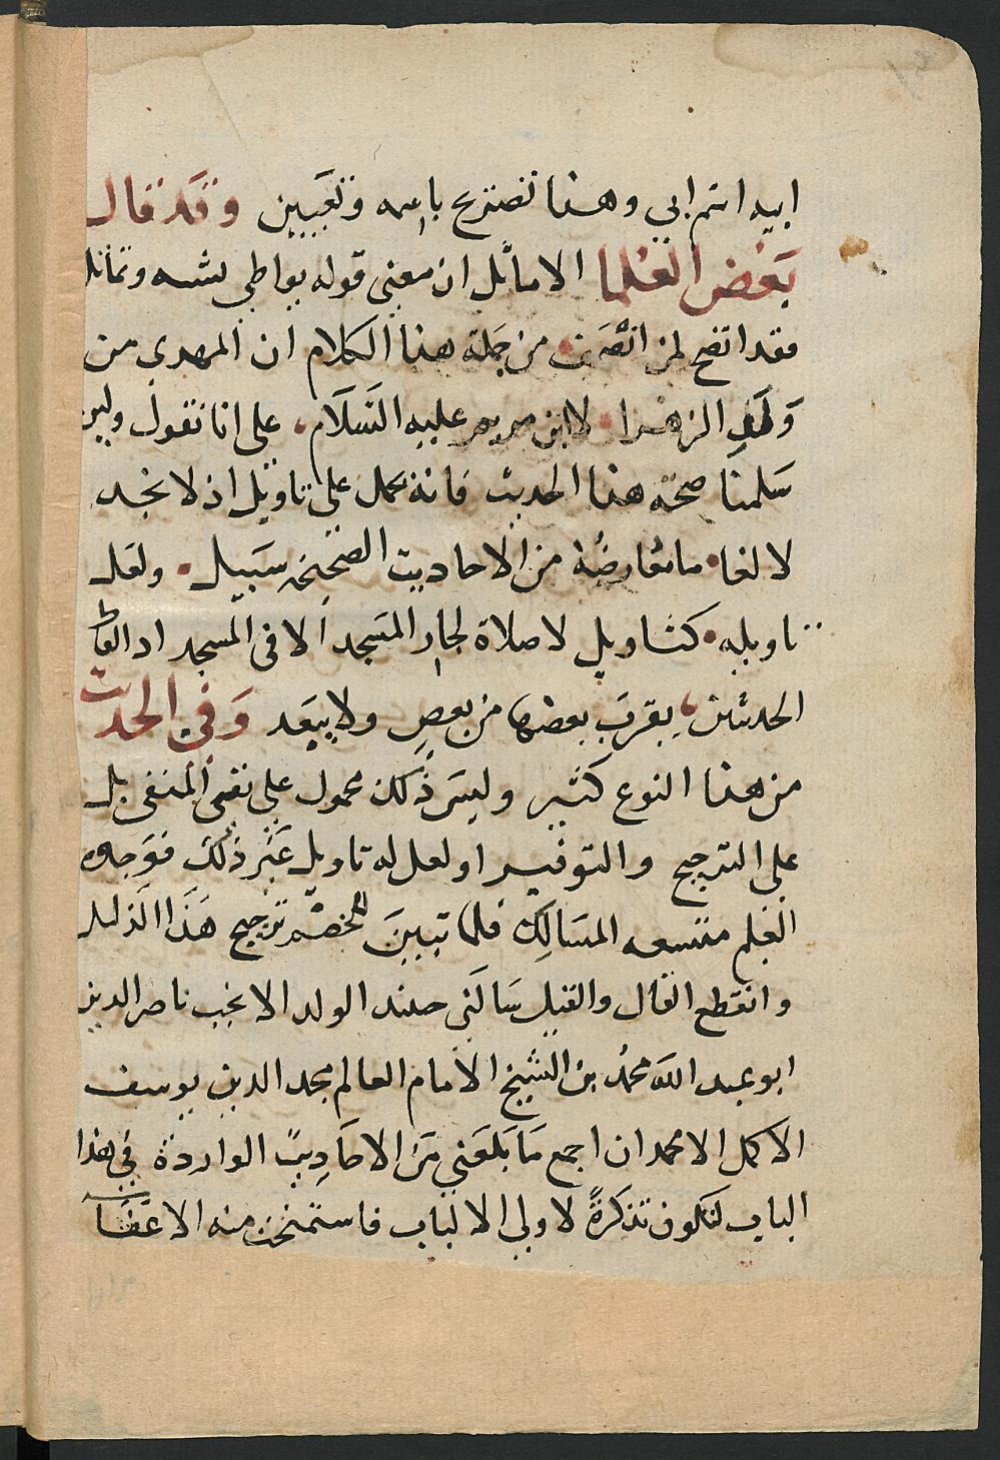 ابيه اسم ابي وهذا تصريح باسمه وتعيين وقد قال
بعض العلما الاماثل ان معنى قوله يواطي يشبه وتماثل
فقد اتضح لمن انصف من جملة هذا الكلام ان المهدي من
ولد الزهرا لا ابن مريم عليه السلام على انا نقول ولين
سلمنا صحة هذا الحديث فانه يحمل على تاويل اذ لا نجد
لالغا ما معارضة من الاحاديث الصحيحة سبيل ولعل
تاويله كتاويل لا صلاة لجار المسجد الا في المسجد اد
الحديثين يقرب بعضها من بعض ولا يبعد وفي الحديث
من هذا النوع كثير وليس ذلك محمول على نفى المنفى بل
على الترجيح والتوفير او لعل له تاويل غير ذلك فوجوه
العلم متسعه المسالك فلما تبين للخصم ترجيح هذا الدليل
وانقطع القال والقيل سالني حينيد الولد الانجب ناصر الدين
ابو عبد الله محمد بن الشيخ الامام العالم مجد الدين يوسف
الاكمل الامجد ان اجمع ما بلغني من الاحاديث الواردة في هذا
الباب لتكون تذكرة لاولي الالباب فاستمنحت منه الاعفا